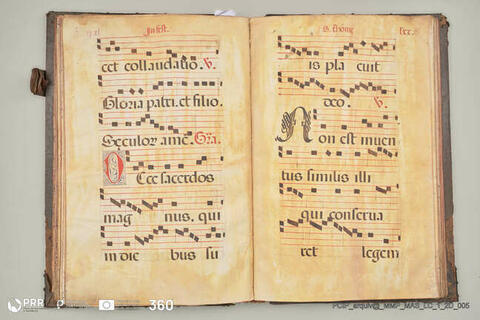 In fest.
cet collaudatio. V.
Gloria patri. et filio.
Seculor ame. Gra.
ECce sacerdos
mag nus, qui
in die bus su
S. Thome
is pla cuit
deo. V.
Non est inuen
tus similis illi
qui conserua
ret legem
PRR
360
PCIP_arquivo_MMP_MAS_LC_3_2D_005